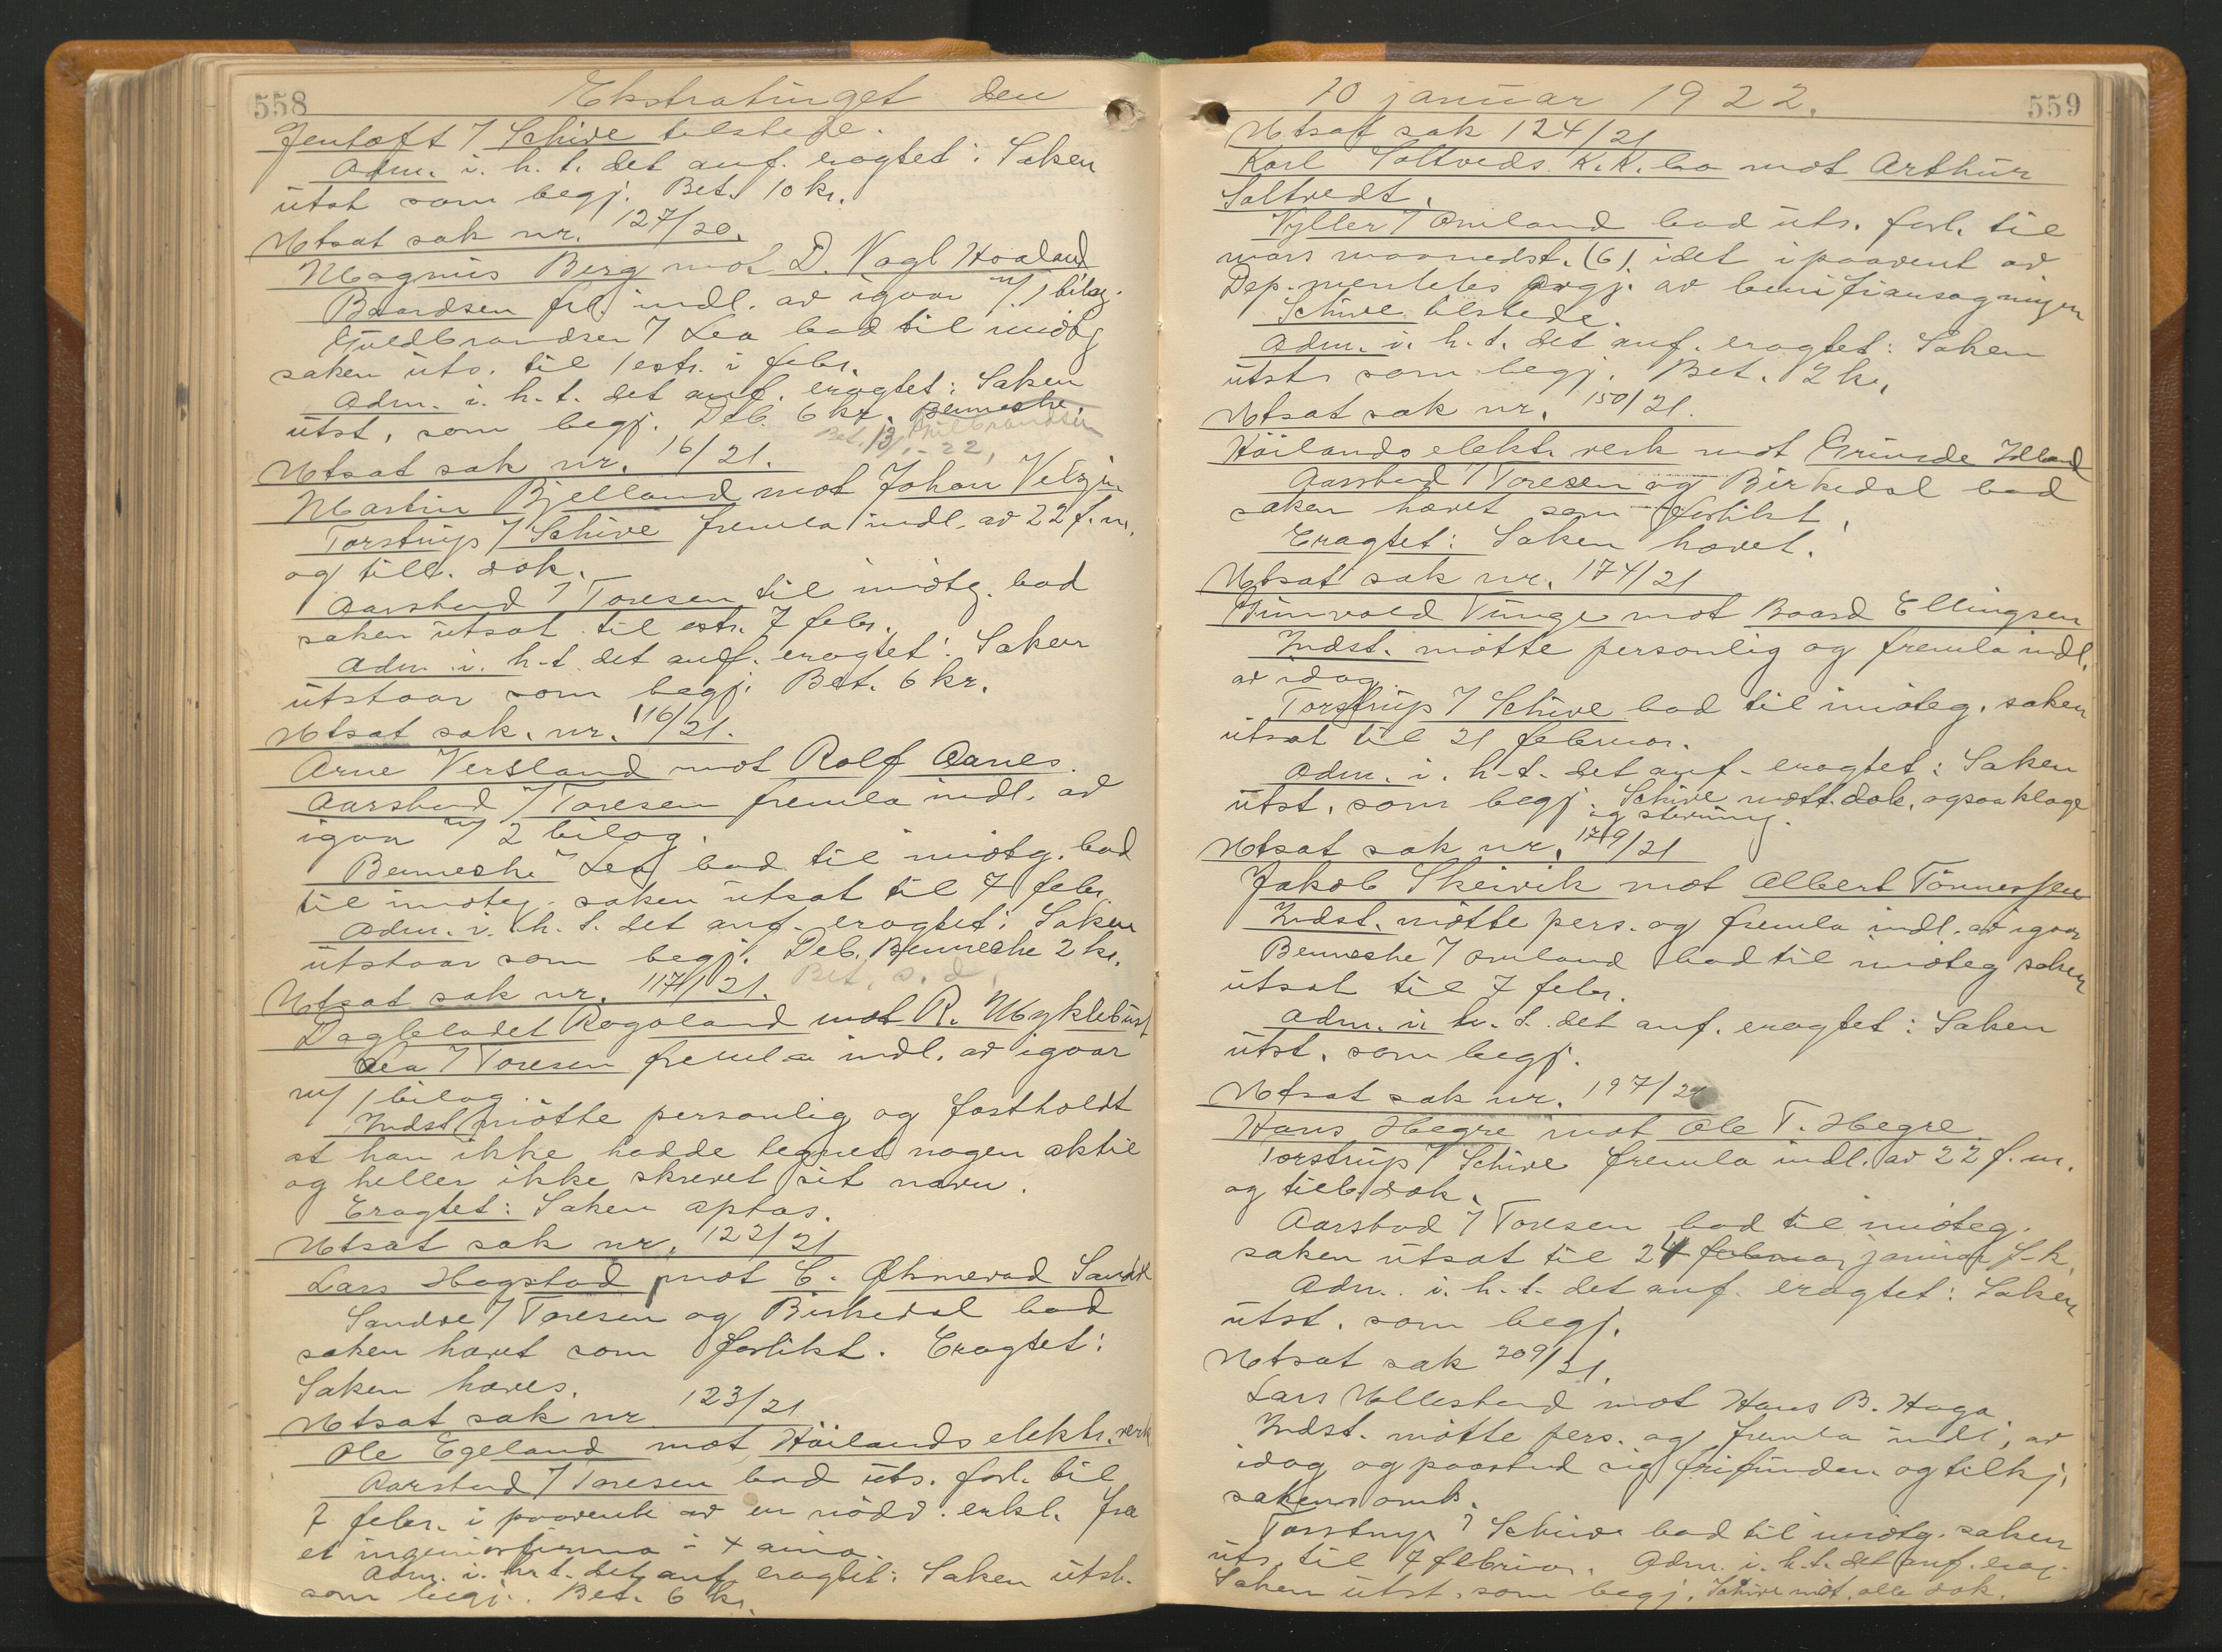 558
Ekstratinget den
Jentoft / Schive tilstede.
Adm. i. h. t. det anf. eragtet: Saken
utst som begj. Bet. 10 kr.
Utsat sak nr. 127/20.
Magnus Berg mot D. Vagl Haaland
Baardsen frl. indl. av igaar m/ 1 bilag.
Guldbrandsen / Lea bad til imøtg
saken uts. til 1 estr. i febr.
Adm. i. h. t. det anf. eragtet: Saken
utst, som begj. Deb. 6 kr. Benneche.
Guldbrandsen
Bet. 13/1-22,
Utsat sak nr. 16/21.
Martin Bjelland mot Johan Vetzin
Torstrup / Schive fremla indl. av 22 f. m.
og till. dok.
Aarstad / Toresen til imøtg. bad
saken utsat til estr. 7 febr.
Adm. i. h. t. det anf. eragtet: Saken
utstaar som begj. Bet. 6 kr.
Utsat sak. nr. 116/21.
Arne Versland mot Rolf Aanes.
Aarstad / Toresen fremla indl. av
igaar m/ 2 bilag.
Benneche / Lea bad til imøtg. bad
til imøteg. saken utsat til 7 febr.
Adm. i. h. t. det anf. eragtet: Saken
utstaar som begj. Deb. Benneche 2 kr.
Bet. s. d.
Utsat sak nr. 117/21.
Dagbladet Rogaland mot R. Myklebust
Lea / Toresen fremla indl. av igaar
m/ 1 bilag.
Indst. møtte personlig og fastholdt
at han ikke hadde tegnet nogen aktie
og heller ikke skrevet sit navn.
Eragtet: Saken optas.
Utsat sak nr. 122/21
Lars Hogstad mot C. Ohmevad Sandv
Sandve / Toresen og Birkedal bad
saken hævet som forlikt. Eragtet:
Saken hæves.
Utsat sak nr 123/21
Ole Egeland mot Höilands elektr. verk
Aarstad / Toresen bad uts. forl. til
7 febr. i paavente av en nødv. erkl. fra
et ingeniørfirma i
Adm. i. h. t. det anf. eragtet: Saken utst.
som begj. Bet. 6 kr.
10 januar 1922.
559
Utsat sak 124/21
Karl Soltveds K.K. bo mot Arthur
Soltvedt.
Vyller / Omland bad uts. forl. til
mars maanedst. (6). idet i paavent av
Dep.mentetes avgj. av benifiansøgningen
Schive tilstede.
Adm. i. h. t. det anf. eragtet: Saken
utst. som begj. Bet. 2 kr.
Utsat sak nr. 150/21.
Höilands elektr. verk mot Gunde Idland
Aarstad / Toresen og Birkedal bad
saken hævet som forlikt.
Eragtet: Saken hævet.
Utsat sak nr. 174/21
Gunvald Tunge mot Baard Ellingsen
Indst. møtte personlig og fremla indl.
av idag.
Torstrup / Schive bad til imøteg. saken
utsat til 21 februar.
Adm. i. h. t. det anf. eragtet: Saken
utst. som begj. Schive mott. dok. ogsaa klage
og stevning.
Utsat sak nr. 179/21
Jakob Skeivik mot Albert Tönnessen
Indst. møtte pers. og fremla indl. av igaar
Benneche / Omland bad til imøteg saken
utsat til 7 febr.
Adm. i. h. t. det anf. eragtet: Saken
utst. som begj.
Utsat sak nr. 197/21
Hans Hegre mot Ole T. Hegre
Torstrup / Schive fremla indl. av 22 f. m.
og till. dok.
Aarstad / Toresen bad til imøteg.
saken utsat til 24 februar januar f. k.
Adm. i. h. t. det anf. eragtet: Saken
utst. som begj.
Utsat sak 209/21.
Lars Ullestad mot Hans B. Haga
Indst. møtte pers. og fremla indl. av
idag og paastod sig frifunden og tilkj.
sakens omk.
Torstrup / Schive bad til imøtg. saken
uts. til 7 februar. Adm. i. h. t. det anf. erag.
Saken utst. som begj. Schive mot. alle dok.